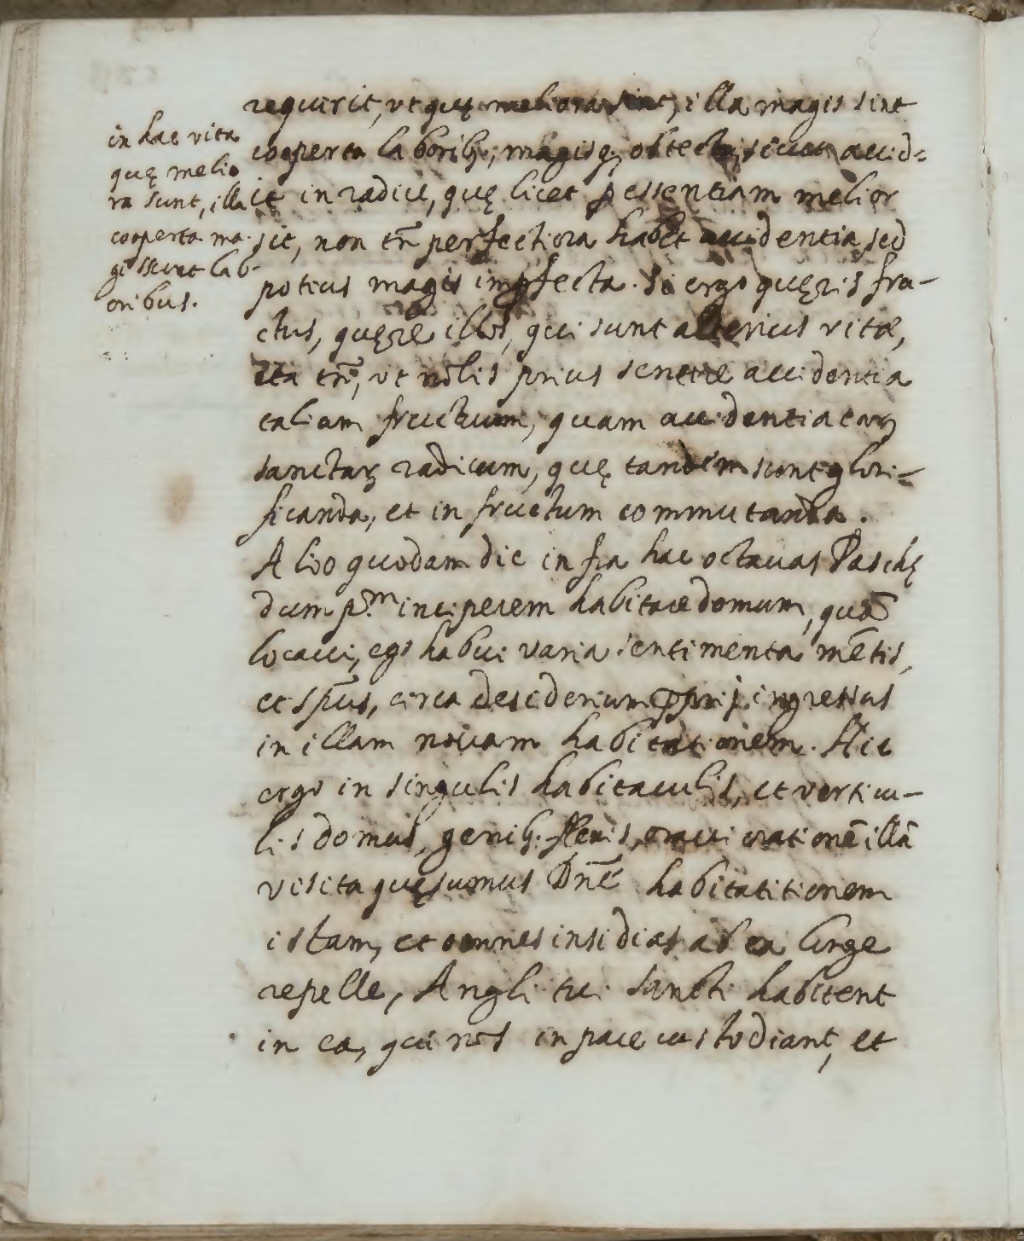 in hac vita
quę melio
ra sunt, illa
cooperta ma-
gis sunt lab-
oribus.
requirit, vt quę meliora sint, illa magis sint
cooperta laborib9, magisq3 obtecta, sicut accid-
it in radice, quę licet p essentiam melior
sit, non tn̄ perfectiora habet accidentia sed
potius magis impfecta. Si ergo quęris fru-
ctus, quęre illos, qui sunt alterius vitæ,
ita tn̄, vt nolis prius sentire accidentia
talium fructuum, quam accidentia earꝝ
sanctarꝝ radicum, quę tandem sunt glori-
ficanda, et in fructum commutanda.
Alio quodam die infra hac octauas Paschę
dum p.m inciperem habitare domum, quā
locaui, ego habui varia sentimenta mētis,
et spūs, circa desiderium ingressus
in illam nouam habitationem. Hic
ergo in singulis habitaculis, et verticu-
lis domus, genib9 flexis, oraui orationē illā
visita quęsumus Dn̄e habitatitionem
istam, et omnes insidias ab ea longe
repelle, Angli tui sancti habitent
in ea, qui nos in pace custodiant, et